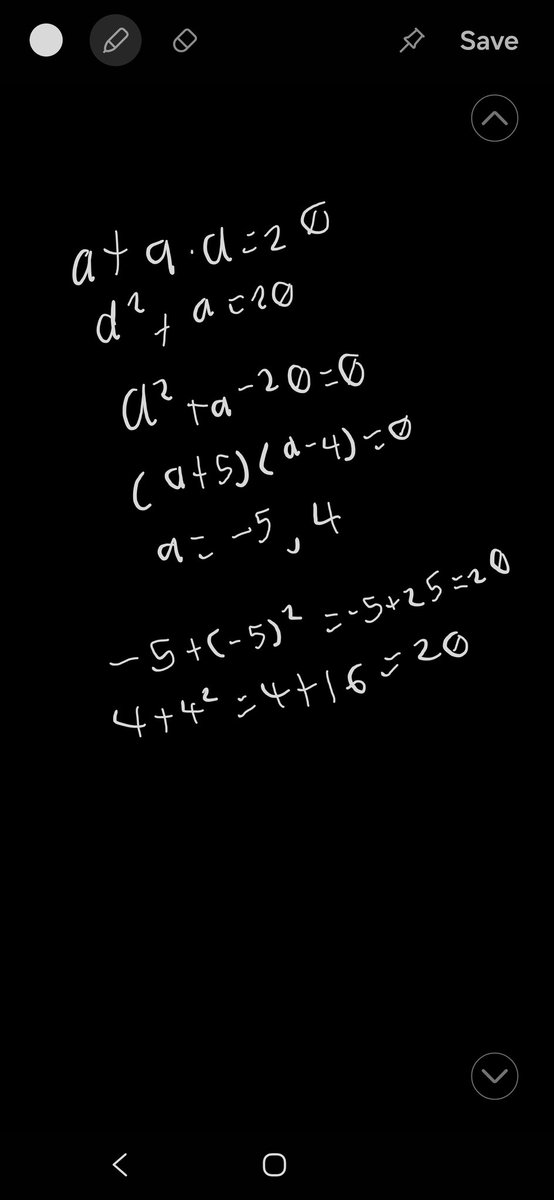 Save
a+a·a=20
a²+a=20
a²+a-20=0
(a+5)(a-4)=0
a=-5,4
-5+(-5)²=-5+25=20
4+4²=4+16=20